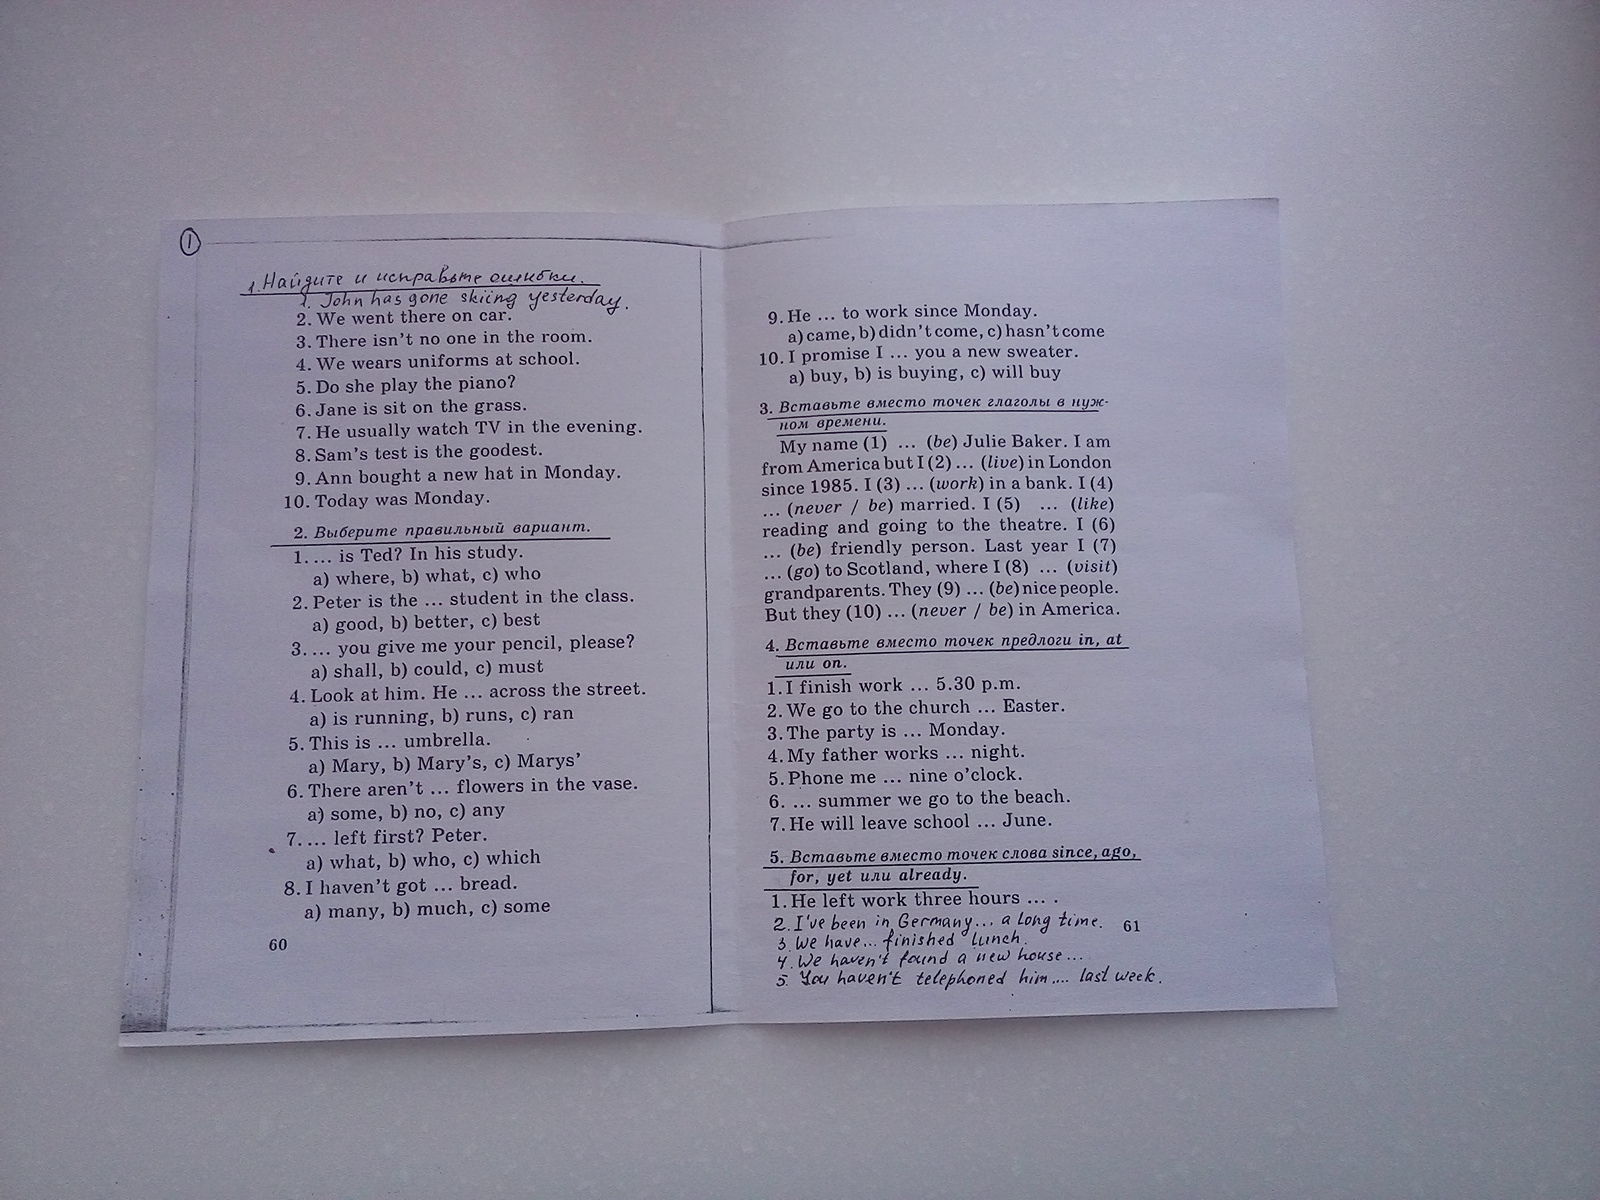 1
1. Найдите и исправьте ошибки.
1. John has gone skiing yesterday.
2. We went there on car.
3. There isn't no one in the room.
4. We wears uniforms at school.
5. Do she play the piano?
6. Jane is sit on the grass.
7. He usually watch TV in the evening.
8. Sam's test is the goodest.
9. Ann bought a new hat in Monday.
10. Today was Monday.
2. Выберите правильный вариант.
1. ... is Ted? In his study.
a) where, b) what, c) who
2. Peter is the ... student in the class.
a) good, b) better, c) best
3. ... you give me your pencil, please?
a) shall, b) could, c) must
4. Look at him. He ... across the street.
a) is running, b) runs, c) ran
5. This is ... umbrella.
a) Mary, b) Mary's, c) Marys'
6. There aren't ... flowers in the vase.
a) some, b) no, c) any
7. ... left first? Peter.
a) what, b) who, c) which
8. I haven't got ... bread.
a) many, b) much, c) some
60
9. He ... to work since Monday.
a) came, b) didn't come, c) hasn't come
10. I promise I ... you a new sweater.
a) buy, b) is buying, c) will buy
3. Вставьте вместо точек глаголы в нуж-
ном времени.
My name (1) ... (be) Julie Baker. I am
from America but I (2) ... (live) in London
since 1985. I (3) ... (work) in a bank. I (4)
... (never / be) married. I (5) ... (like)
reading and going to the theatre. I (6)
... (be) friendly person. Last year I (7)
... (go) to Scotland, where I (8) ... (visit)
grandparents. They (9) ... (be) nice people.
But they (10) ... (never / be) in America.
4. Вставьте вместо точек предлоги in, at
или on.
1. I finish work ... 5.30 p.m.
2. We go to the church ... Easter.
3. The party is ... Monday.
4. My father works ... night.
5. Phone me ... nine o'clock.
6. ... summer we go to the beach.
7. He will leave school ... June.
5. Вставьте вместо точек слова since, ago,
for, yet или already.
1. He left work three hours ... .
2. I've been in Germany... a long time.
61
3. We have... finished lunch.
4. We haven't found a new house...
5. You haven't telephoned him.... last week.